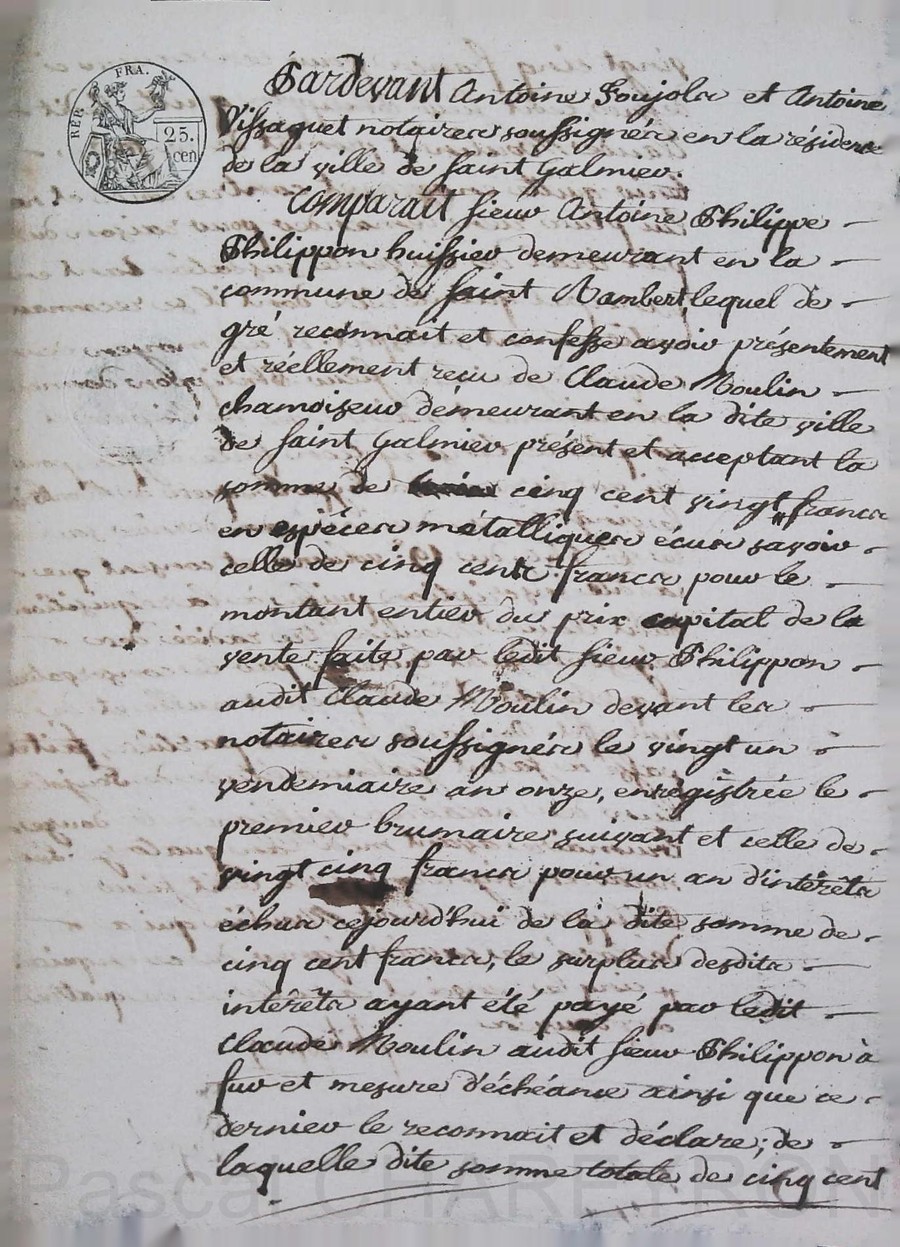 REP. FRA.
25.
cen
Pardevant Antoine Poujola et Antoine
Vissaguet notaires soussignés en la résidence
de la ville de Saint Galmier.
Comparait sieur Antoine Philippe
Philippon huissier demeurant en la
commune de Saint Rambert, lequel de
gré reconnait et confesse avoir présentement
et réellement reçu de Claude Moulin
chamoiseur démeurant en la dite ville
de Saint Galmier présent et acceptant la
somme de cinq cent vingt francs
en espèces métalliques écus savoir
celle de cinq cents francs pour le
montant entier du prix capital de la
vente faite par ledit sieur Philippon
audit Claude Moulin devant les
notaires soussignés le vingt un
vendemiaire an onze, enregistrée le
premier brumaire suivant et celle de
vingt cinq francs pour un an d'intérêts
échus cejourd'hui de la dite somme de
cinq cent francs, le surplus desdits
intérêts ayant été payé par ledit
Claude Moulin audit sieur Philippon à
fur et mesure d'échéance ainsi que ce
dernier le reconnait et déclare; de
laquelle dite somme totale de cinq cent
Pascal CHAREYRON